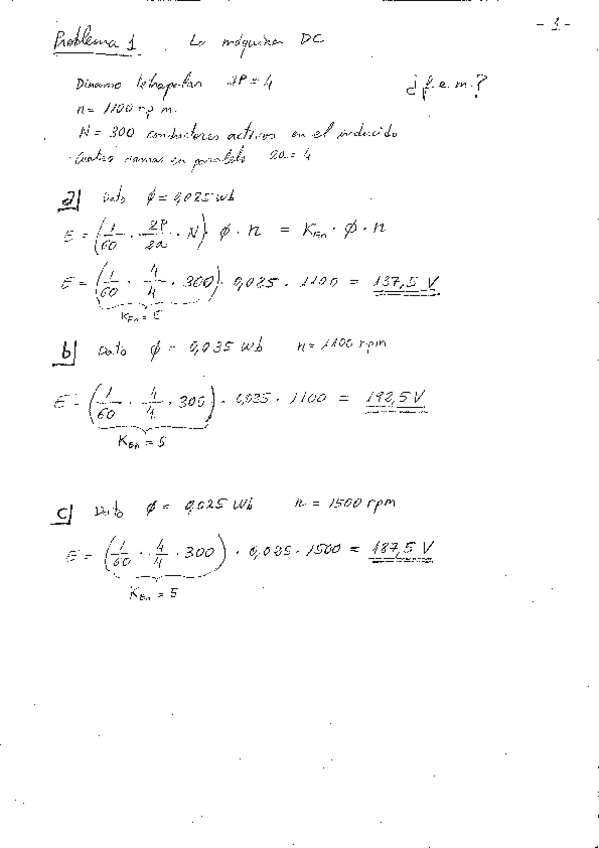 - 1 -
Problema 1. La máquina DC
Dinamo tetrapolar 2P = 4 ¿f.e.m.?
n = 1100 r p m.
N = 300 conductores activos en el inducido
Cuatro ramas en paralelo 2a = 4
a) Dato φ = 0,025 wb
E = (1/60 · 2P/2a · N) · φ · n = K_En · φ · n
E = (1/60 · 4/4 · 300) · 0,025 · 1100 = 137,5 V
K_En = 5
b) Dato φ = 0,035 wb n = 1100 rpm
E = (1/60 · 4/4 · 300) · 0,035 · 1100 = 192,5 V
K_En = 5
c) Dato φ = 0,025 Wb n = 1500 rpm
E = (1/60 · 4/4 · 300) · 0,025 · 1500 = 187,5 V
K_En = 5